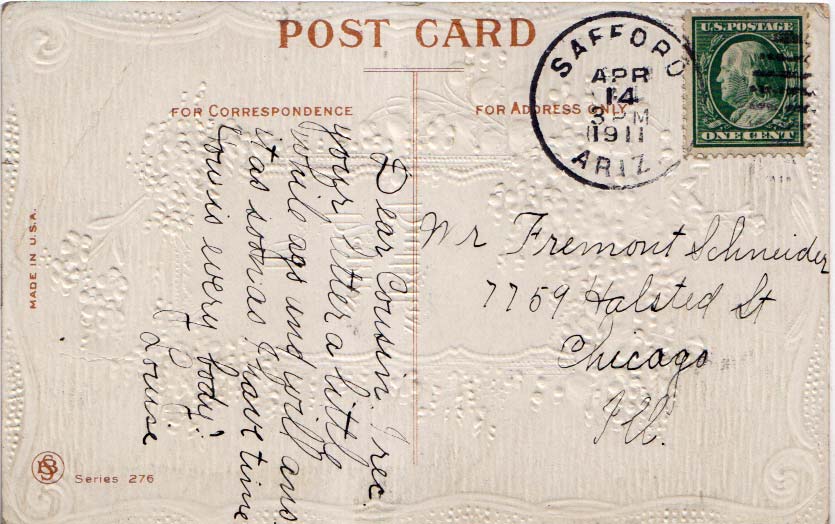 POST CARD
FOR CORRESPONDENCE
FOR ADDRESS ONLY
SAFFORD
APR
14
3 PM
1911
ARIZ.
U.S. POSTAGE
ONE CENT
Dear Cousin. I rec.
your letter a little
while ago and will ans
it as soon as I have time
How is every body?
Louise
Mr Fremont Schneider
7759 Halsted St
Chicago
Ill.
MADE IN U.S.A.
Series 276